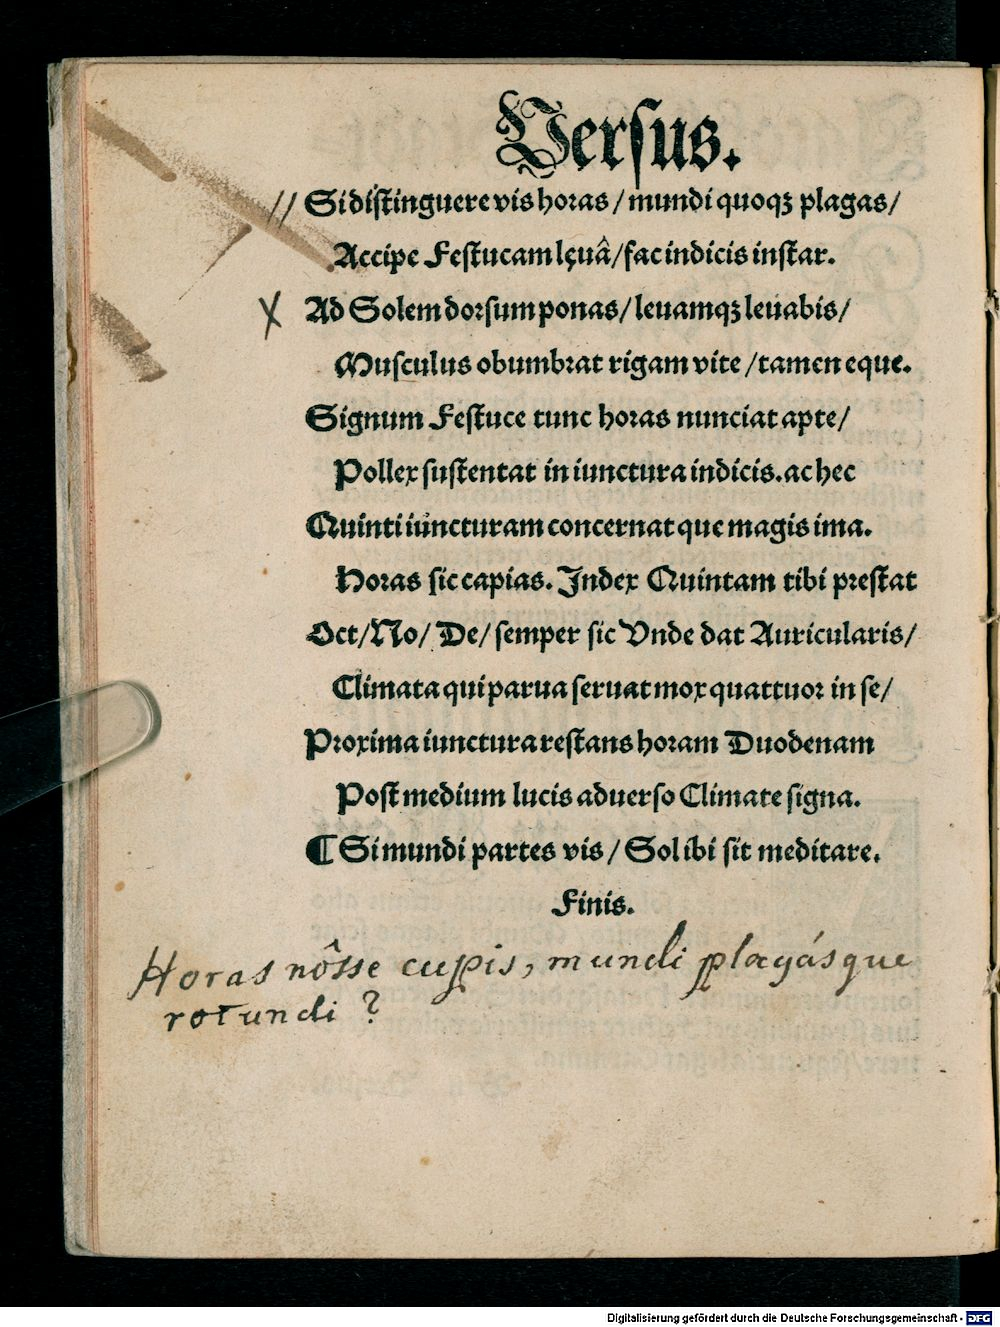 Versus.
// Si distinguere vis horas / mundi quoqꝫ plagas /
Accipe Festucam lęuâ / fac indicis instar.
X Ad Solem dorsum ponas / leuamqꝫ leuabis /
Musculus obumbrat rigam vite / tamen eque.
Signum Festuce tunc horas nunciat apte /
Pollex sustentat in iunctura indicis. ac hec
Quinti iuncturam concernat que magis ima.
Horas sic capias. Index Quintam tibi prestat
Oct / No / De / semper sic Vnde dat Auricularis /
Climata qui parua seruat mox quattuor in se /
Proxima iunctura restans horam Duodenam
Post medium lucis aduerso Climate signa.
¶ Si mundi partes vis / Sol ibi sit meditare.
Finis.
Horas nôsse cupis, mundi plagásque
rotundi?
Digitalisierung gefördert durch die Deutsche Forschungsgemeinschaft - DFG